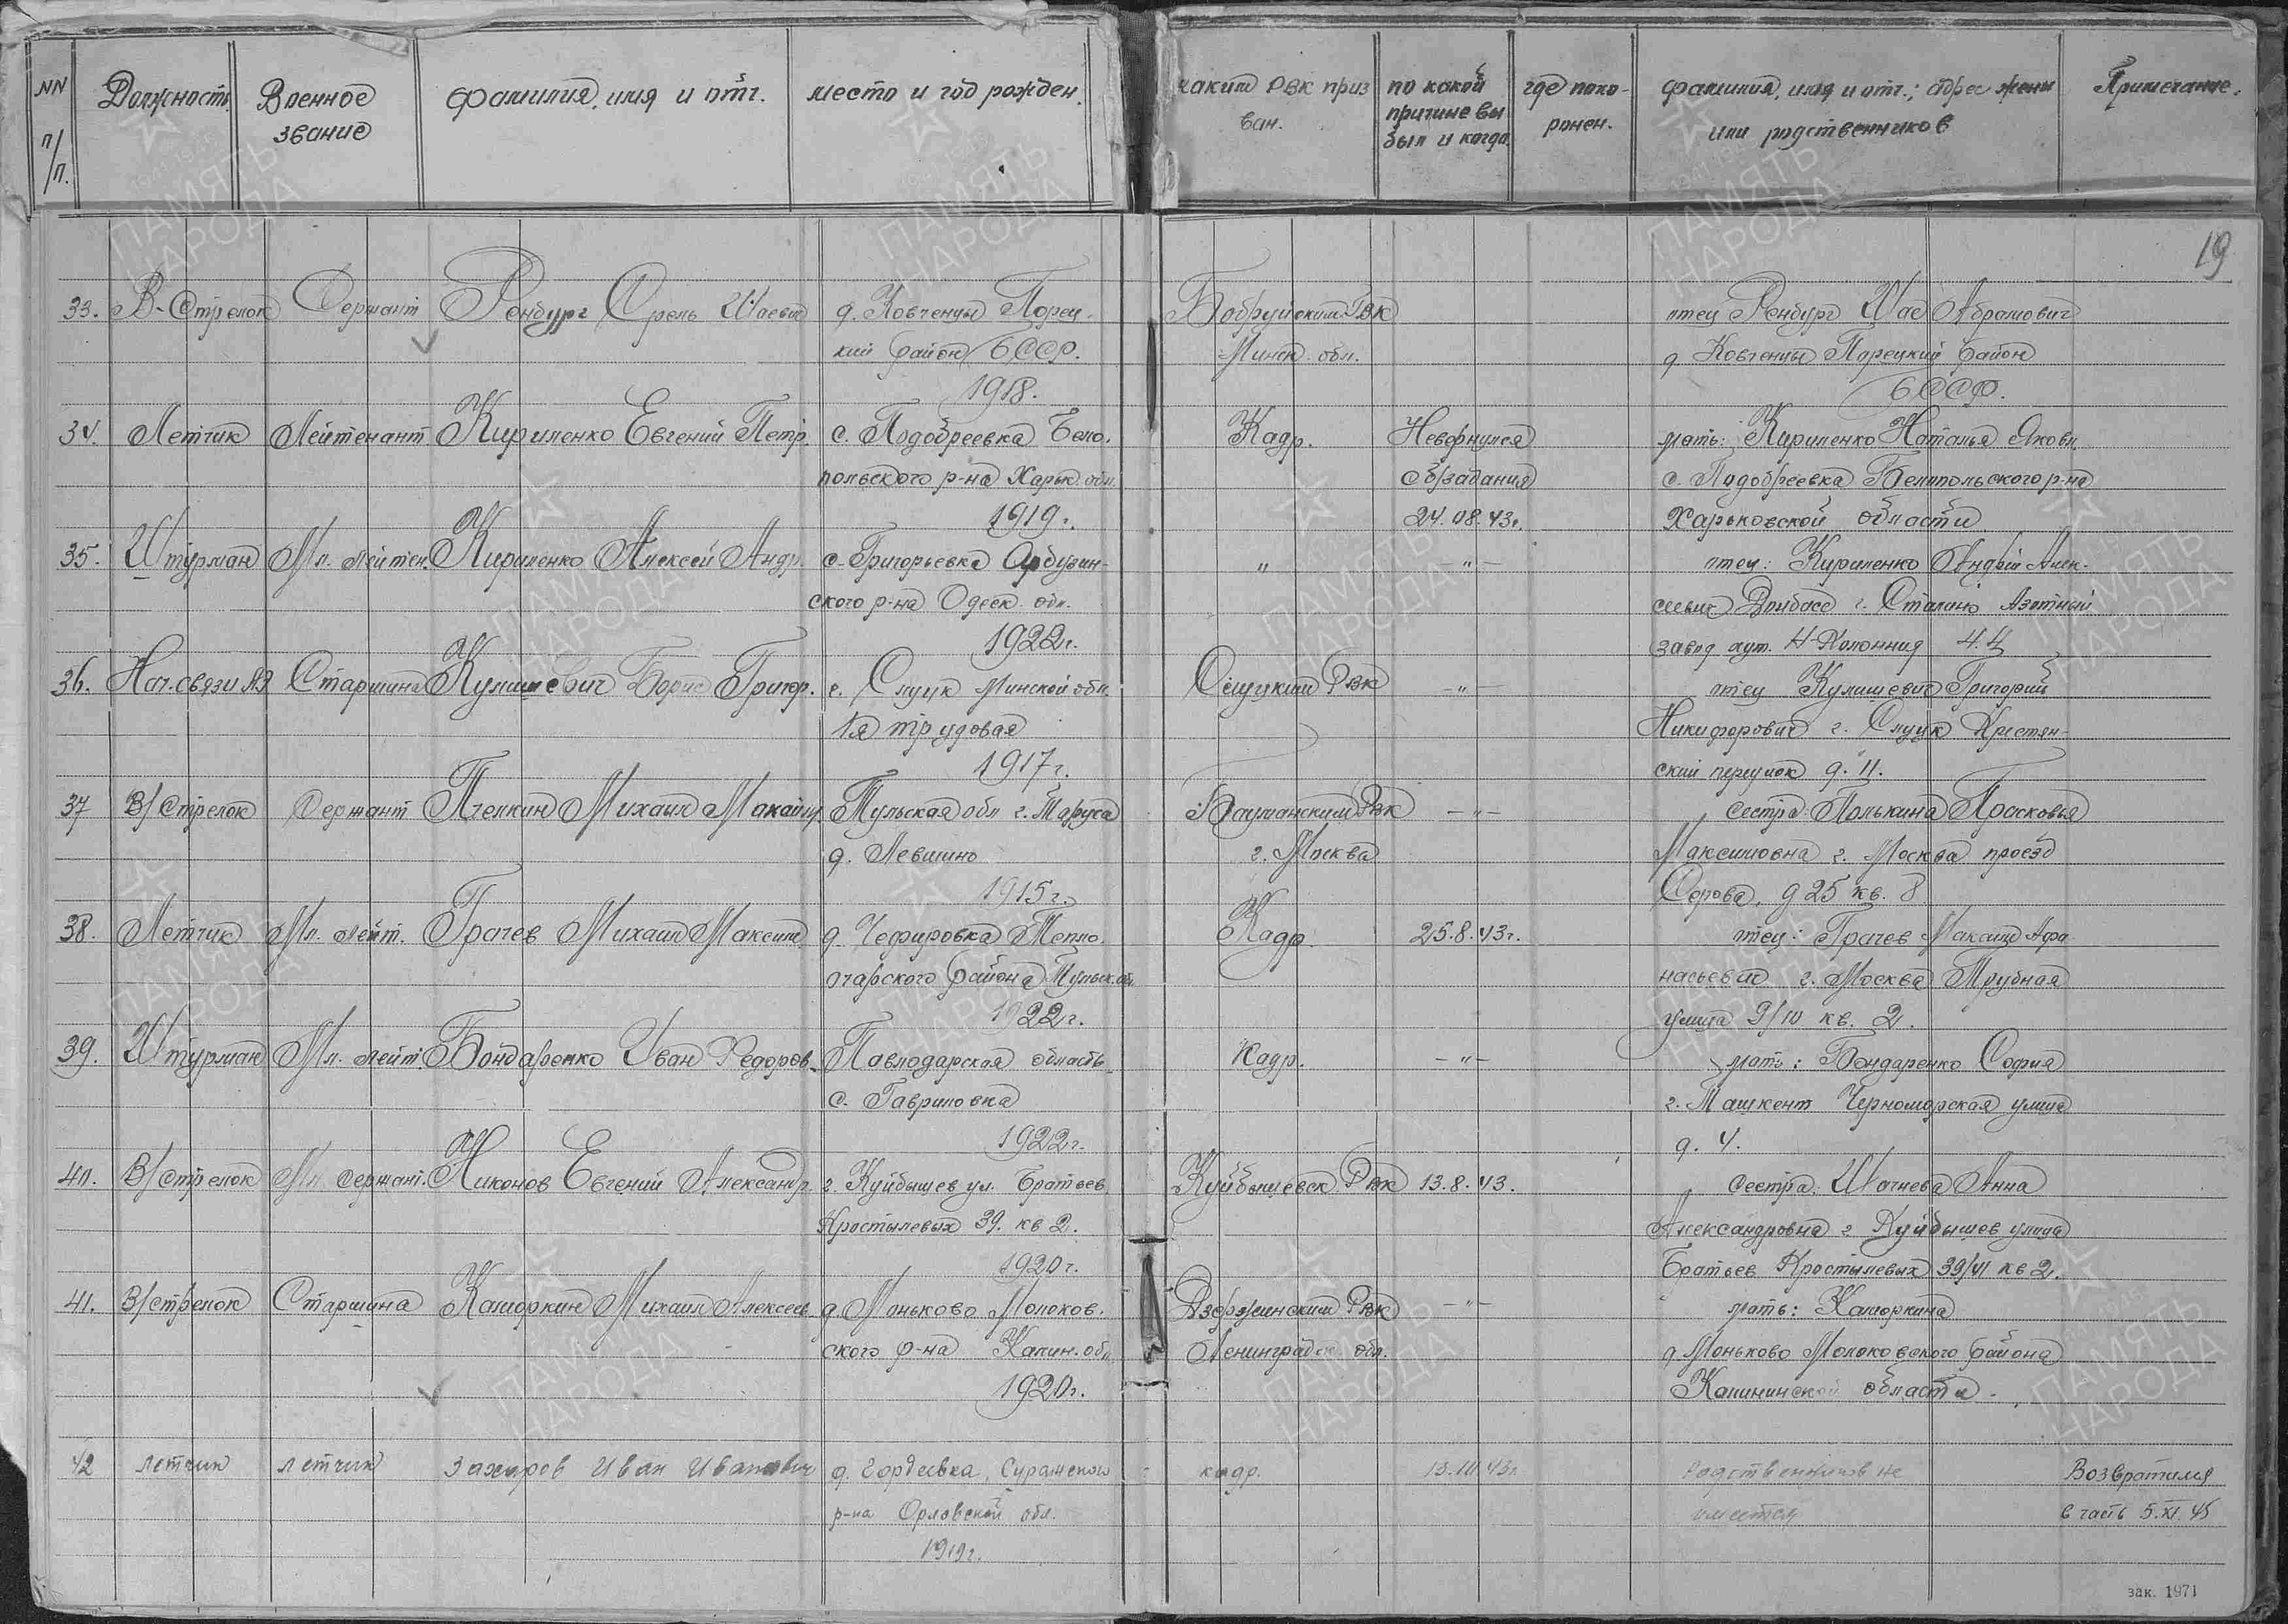 NN п/п.
Должность
Военное звание
фамилия, имя и отч.
место и год рожден.
каким РВК призван.
по какой причине выбыл и когда
где похоронен.
фамилия, имя и отч.; адрес жены или родственников
Примечание.
19
33. В-Стрелок Сержант Ренбург Срель Шаевич д. Ковченцы Порец- Бобруйским РВК отец Ренбург Шае Абрамович
кий район БССР. Минск. обл. д Ковченцы Порецкий район
1918. БССР.
34. Летчик Лейтенант Кириленко Евгений Петр. с. Подобреевка Бело. Кадр. Невернулся мать: Кириленко Наталья Яковл.
польского р-на Харьк. обл. с б/задания с. Подобреевка Белопольского р-на
1919г. 24.08.43г. Харьковской области
35. Штурман Мл. лейтен. Кириленко Алексей Андр. с. Григорьевка Арбузин- " -"- отец: Кириленко Андрей Алек-
ского р-на Одеск. обл. сеевич Донбасс г. Сталино Азотный
1922г. завод хут. Н-Колония 44
36. Нач. связи АЭ Старшина Кулишевич Борис Григор. г. Слуцк Минской обл. Слуцким РВК -"- отец Кулишевич Григорий
1я трудовая Никифорович г. Слуцк Крестян-
1917г. ский переулок д. 11.
37 В/Стрелок Сержант Пчелкин Михаил Тульская обл г. Таруса Бауманским РВК -"- сестра Полькина Прасковья
д. Левшино г. Москва Максимовна г. Москва проезд
1915г. Серова, д 25 кв. 8
38. Летчик Мл. лейт. Грачев Михаил Максим. д. Чефировка Тепло- Кадр. 25.8.43г. отец: Грачев Максим Афа-
огарского района Тульск. обл. насьевич г. Москва Трубная
1922г. улица 9/10 кв. 2.
39. Штурман Мл. лейт. Бондаренко Иван Федоров. Павлодарская область Кадр. -"- мать: Бондаренко София
с. Гавриловка г. Ташкент Черноморская улица
1922г. д. 4.
40. В/Стрелок Мл. Сержант. Никонов Евгений Александр. г. Куйбышев ул. Братьев Куйбышевск. РВК 13.8.43. сестра: Шачнева Анна
Кростылевых 39. кв 2. Александровна г Куйбышев улица
1920г. Братьев Кростылевых 39/41 кв 2.
41. В/стрелок Старшина Каморкин Михаил Алексеев. д. Моньково Молоков. Дзержинским РВК -"- мать: Каморкина
ского р-на Калин. обл. Ленинградск. обл. д Моньково Молоковского района
1920г. Калининской области.
42 летчик летчик Захаров Иван Иванович д. Гордеевка, Суражского кадр. 13.10.43г. Родственников не Возвратился
р-на Орловской обл. имеется в часть 5.XI.45
1919г.
зак. 1971
ПАМЯТЬ НАРОДА